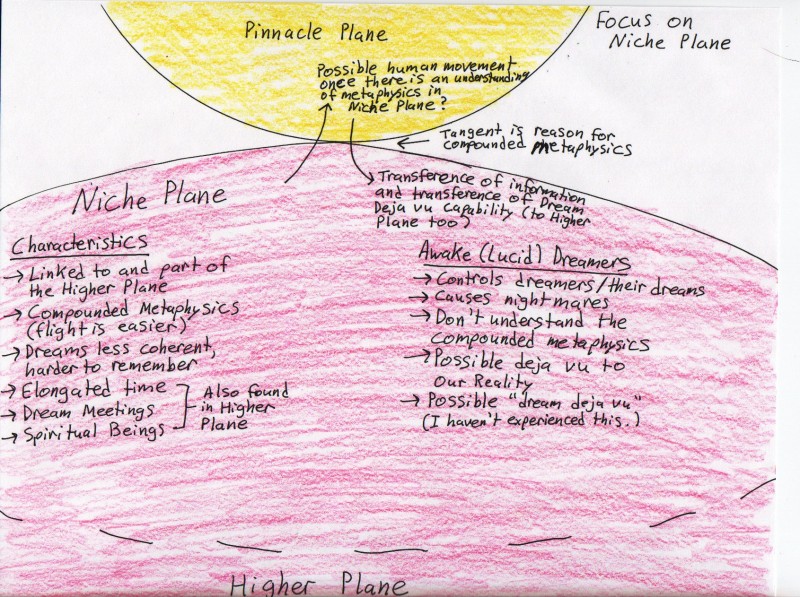 Pinnacle Plane
Focus on
Niche Plane
Possible human movement
once there is an understanding
of metaphysics in
Niche Plane?
Tangent is reason for
compounded metaphysics
Niche Plane
Transference of information
and transference of Dream
Deja vu Capability (to Higher
Plane too)
Characteristics
→ Linked to and part of
the Higher Plane
→ Compounded Metaphysics
(flight is easier)
→ Dreams less coherent,
harder to remember
→ Elongated time
→ Dream Meetings
→ Spiritual Beings
Also found
in Higher
Plane
Awake (Lucid) Dreamers
→ Controls dreamers/their dreams
→ Causes nightmares
→ Don't understand the
compounded metaphysics
→ Possible deja vu to
Our Reality
→ Possible "dream deja vu"
(I haven't experienced this.)
Higher Plane